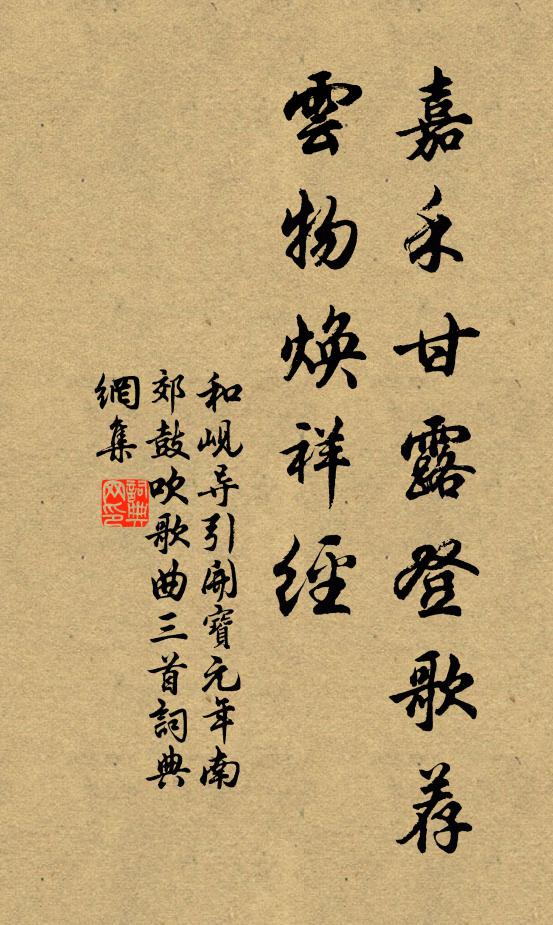 嘉禾甘露登歌荐
雲物焕祥經
和峴导引開寶元年南
郊鼓吹歌曲三首詞典
網集
詞典
网印